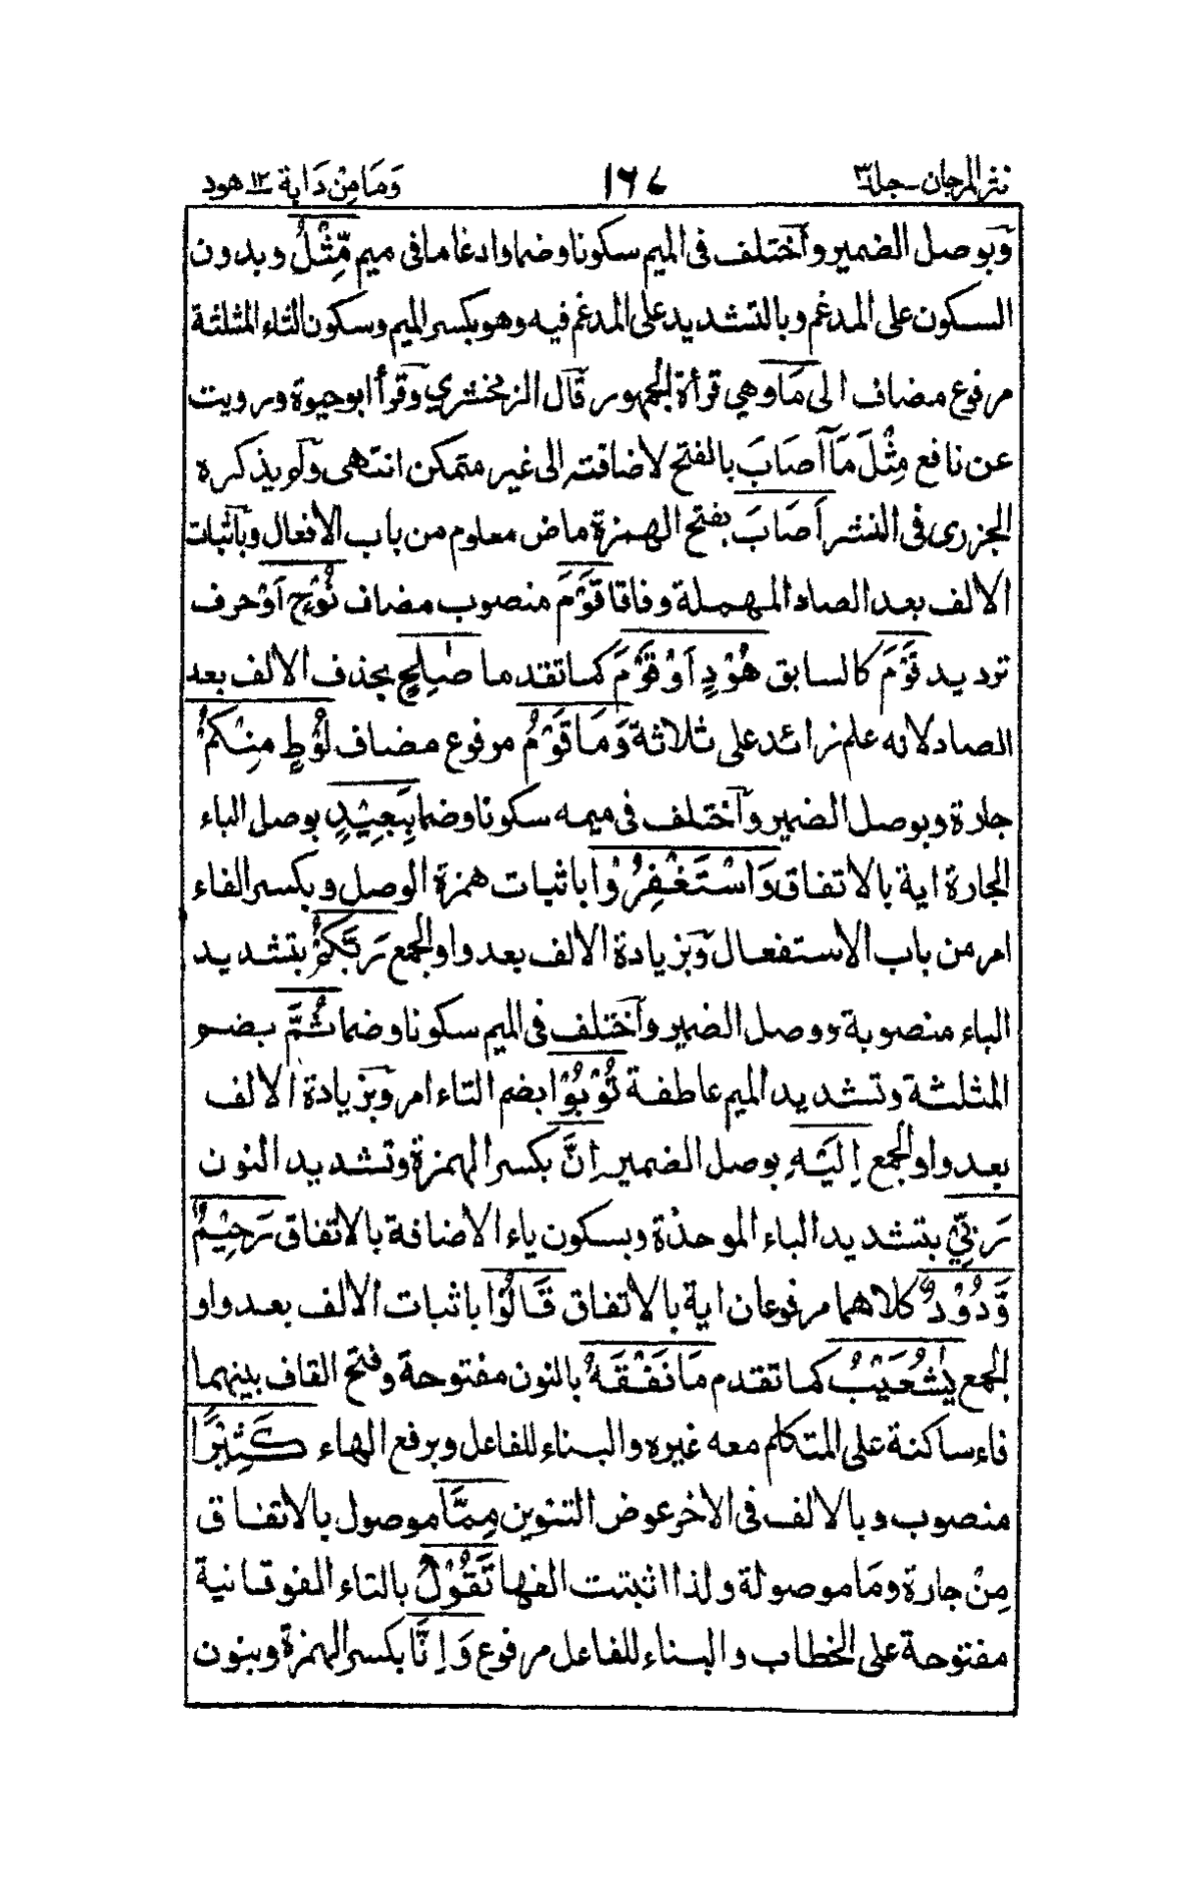 نثر المرجان ــ جلد٣ ١٦٧ وَمَا مِنْ دَابة ١٢ هود
وبوصل الضمير واختلف فى الميم سكونا وضما وادغاما فى ميم مِّثْلُ وبدون
السكون على المدغم وبالتشديد على المدغم فيه وهو بكسر الميم وسكون الثاء المثلثة
مرفوع مضاف الى مَا وهي قرأة الجمهور قال الزمخشري وقرأ ابوحيوة ورويت
عن نافع مِثْلَ مَآ اَصَابَ بالفتح لاضافته الى غير متمكن انتهى ولم يذكره
الجزرى فى النشر اَصَابَ بفتح الهمزة ماض معلوم من باب الافعال وباثبات
الالف بعد الصاد المهملة وفاقا قَوْمَ منصوب مضاف نُوْحٍ اَوْ حرف
ترديد قَوْمَ كالسابق هُوْدٍ اَوْ قَوْمَ كما تقدما صٰلِحٍ بحذف الالف بعد
الصاد لانه علم زائد على ثلاثة وَمَا قَوْمُ مرفوع مضاف لُوْطٍ مِنْكُمْ
جارة وبوصل الضمير واختلف فى ميمه سكونا وضما بِبَعِيْدٍ بوصل الباء
الجارة اية بالاتفاق وَاسْتَغْفِرُوْا باثبات همزة الوصل وبكسر الفاء
امر من باب الاستفعال وبزيادة الالف بعد واو الجمع رَبَّكُمْ بتشديد
الباء منصوبة ووصل الضمير واختلف فى الميم سكونا وضما ثُمَّ بضم
المثلثة وتشديد الميم عاطفة تُوْبُوْا بضم التاء امر وبزيادة الالف
بعد واو الجمع اِلَيْهِ بوصل الضمير اِنَّ بكسر الهمزة وتشديد النون
رَبِّيْ بتشديد الباء الموحدة وبسكون ياء الاضافة بالاتفاق رَحِيْمٌ
وَّدُوْدٌ كلاهما مرفوعان اية بالاتفاق قَالُوْا باثبات الالف بعد واو
الجمع يٰشُعَيْبُ كما تقدم مَا نَفْقَهُ بالنون مفتوحة وفتح القاف بينهما
فاء ساكنة على المتكلم معه غيره والبناء للفاعل وبرفع الهاء كَثِيْرًا
منصوب وبالالف فى الاخر عوض التنوين مِمَّا موصول بالاتفاق
مِنْ جارة ومَا موصولة ولذا اثبتت الفها تَقُوْلُ بالتاء الفوقانية
مفتوحة على الخطاب والبناء للفاعل مرفوع وَاِنَّا بكسر الهمزة وبنون